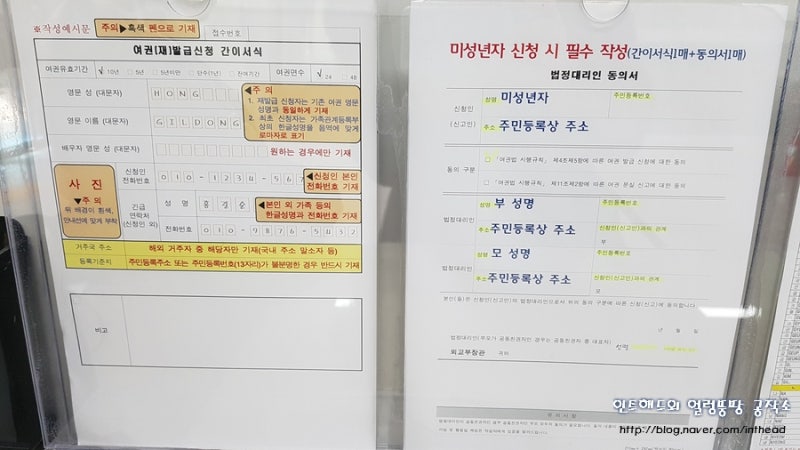 ※작성예시문
주의▶흑색 펜으로 기재
접수번호
여권(재)발급신청 간이서식
여권유효기간 √10년 5년 5년미만 단수(1년) 잔여기간 여권면수 √24 48
영문 성 (대문자) HONG
◀주의
1. 재발급 신청자는 기존 여권 영문
성명과 동일하게 기재
2. 최초 신청자는 가족관계등록부
상의 한글성명을 음역에 맞게
로마자로 표기
영문 이름 (대문자) GILDONG
배우자 영문 성 (대문자) 원하는 경우에만 기재
사 진
▼주의
뒤 배경이 흰색,
안내선에 맞게 부착
신청인
전화번호 010-1234-567
◀신청인 본인
전화번호 기재
긴급
연락처
(신청인 외)
성명 홍길순
◀본인 외 가족 등의
한글성명과 전화번호 기재
전화번호 010-9876-5432
거주국 주소 해외 거주자 중 해당자만 기재(국내 주소 말소자 등)
등록기준지 주민등록주소 또는 주민등록번호(13자리)가 불분명한 경우 반드시 기재
비고
미성년자 신청 시 필수 작성(간이서식1매+동의서1매)
법정대리인 동의서
신청인
(신고인)
성명 미성년자 주민등록번호
주소 주민등록상 주소
동의 구분
□「여권법 시행규칙」 제4조제5항에 따른 여권 발급 신청에 대한 동의
□「여권법 시행규칙」 제11조제2항에 따른 여권 분실 신고에 대한 동의
법정대리인
성명 부 성명 주민등록번호
주소 주민등록상 주소 신청인(신고인)과의 관계
부
법정대리인
성명 모 성명 주민등록번호
주소 주민등록상 주소 신청인(신고인)과의 관계
모
본인(들)은 신청인(신고인)의 법정대리인으로서 위의 동의 구분에 따른 신청(신고)에 동의합니다.
년 월 일
법정대리인(부모가 공동친권자인 경우는 공동친권자 중 대표자) 성명
외교부장관 귀하
유의사항
인트해드의 얼렁뚱땅 공작소
http://blog.naver.com/inthead